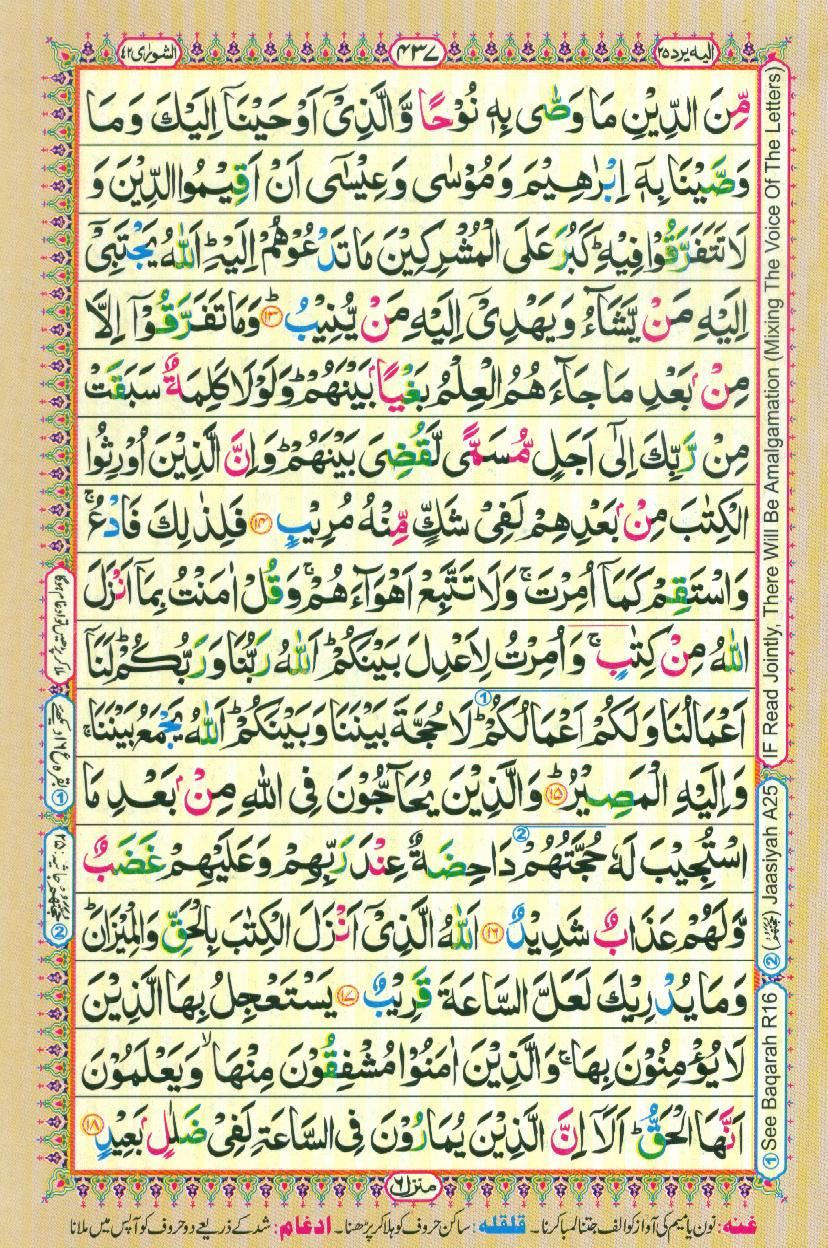 الیہ یرد ۲۵
۴۳۷
الشورٰی ۴۲
مِّنَ الدِّيْنِ مَا وَصّٰى بِهٖ نُوْحًا وَّالَّذِيْۤ اَوْحَيْنَاۤ اِلَيْكَ وَمَا
وَصَّيْنَا بِهٖۤ اِبْرٰهِيْمَ وَمُوْسٰى وَعِيْسٰۤى اَنْ اَقِيْمُوا الدِّيْنَ وَ
لَا تَتَفَرَّقُوْا فِيْهِ ؕ كَبُرَ عَلَى الْمُشْرِكِيْنَ مَا تَدْعُوْهُمْ اِلَيْهِ ؕ اَللّٰهُ يَجْتَبِيْۤ
اِلَيْهِ مَنْ يَّشَآءُ وَيَهْدِيْۤ اِلَيْهِ مَنْ يُّنِيْبُ ؕ ۱۳ وَمَا تَفَرَّقُوْۤا اِلَّا
مِنْۢ بَعْدِ مَا جَآءَ هُمُ الْعِلْمُ بَغْيًۢا بَيْنَهُمْ ؕ وَلَوْلَا كَلِمَةٌ سَبَقَتْ
مِنْ رَّبِّكَ اِلٰۤى اَجَلٍ مُّسَمًّى لَّقُضِيَ بَيْنَهُمْ ؕ وَاِنَّ الَّذِيْنَ اُوْرِثُوا
الْكِتٰبَ مِنْۢ بَعْدِهِمْ لَفِيْ شَكٍّ مِّنْهُ مُرِيْبٍ ۱۴ فَلِذٰلِكَ فَادْعُ ۚ
وَاسْتَقِمْ كَمَاۤ اُمِرْتَ ۚ وَلَا تَتَّبِعْ اَهْوَآءَهُمْ ۚ وَقُلْ اٰمَنْتُ بِمَاۤ اَنْزَلَ
اللّٰهُ مِنْ كِتٰبٍ ۚ وَاُمِرْتُ لِاَعْدِلَ بَيْنَكُمْ ؕ اَللّٰهُ رَبُّنَا وَرَبُّكُمْ ؕ لَنَاۤ
اَعْمَالُنَا وَلَكُمْ اَعْمَالُكُمْ ؕ ① لَا حُجَّةَ بَيْنَنَا وَبَيْنَكُمْ ؕ اَللّٰهُ يَجْمَعُ بَيْنَنَا ۚ
وَاِلَيْهِ الْمَصِيْرُ ؕ ۱۵ وَالَّذِيْنَ يُحَآجُّوْنَ فِي اللّٰهِ مِنْۢ بَعْدِ مَا
اسْتُجِيْبَ لَهٗ حُجَّتُهُمْ ② دَاحِضَةٌ عِنْدَ رَبِّهِمْ وَعَلَيْهِمْ غَضَبٌ
وَّلَهُمْ عَذَابٌ شَدِيْدٌ ۱۶ اَللّٰهُ الَّذِيْۤ اَنْزَلَ الْكِتٰبَ بِالْحَقِّ وَالْمِيْزَانَ ؕ
وَمَا يُدْرِيْكَ لَعَلَّ السَّاعَةَ قَرِيْبٌ ۱۷ يَسْتَعْجِلُ بِهَا الَّذِيْنَ
لَا يُؤْمِنُوْنَ بِهَا ۚ وَالَّذِيْنَ اٰمَنُوْا مُشْفِقُوْنَ مِنْهَا ۙ وَيَعْلَمُوْنَ
اَنَّهَا الْحَقُّ ؕ اَلَاۤ اِنَّ الَّذِيْنَ يُمَارُوْنَ فِي السَّاعَةِ لَفِيْ ضَلٰلٍۭ بَعِيْدٍ ۱۸
منزل ۶
غنہ: نون یا میم کی آواز کو الف جتنا لمبا کرنا۔ قلقلہ: ساکن حروف کو ہلا کر پڑھنا۔ ادغام: شد کے ذریعے دو حروف کو آپس میں ملانا
IF Read Jointly, There Will Be Amalgamation (Mixing The Voice Of The Letters)
② Jaasiyah A25
① See Baqarah R16